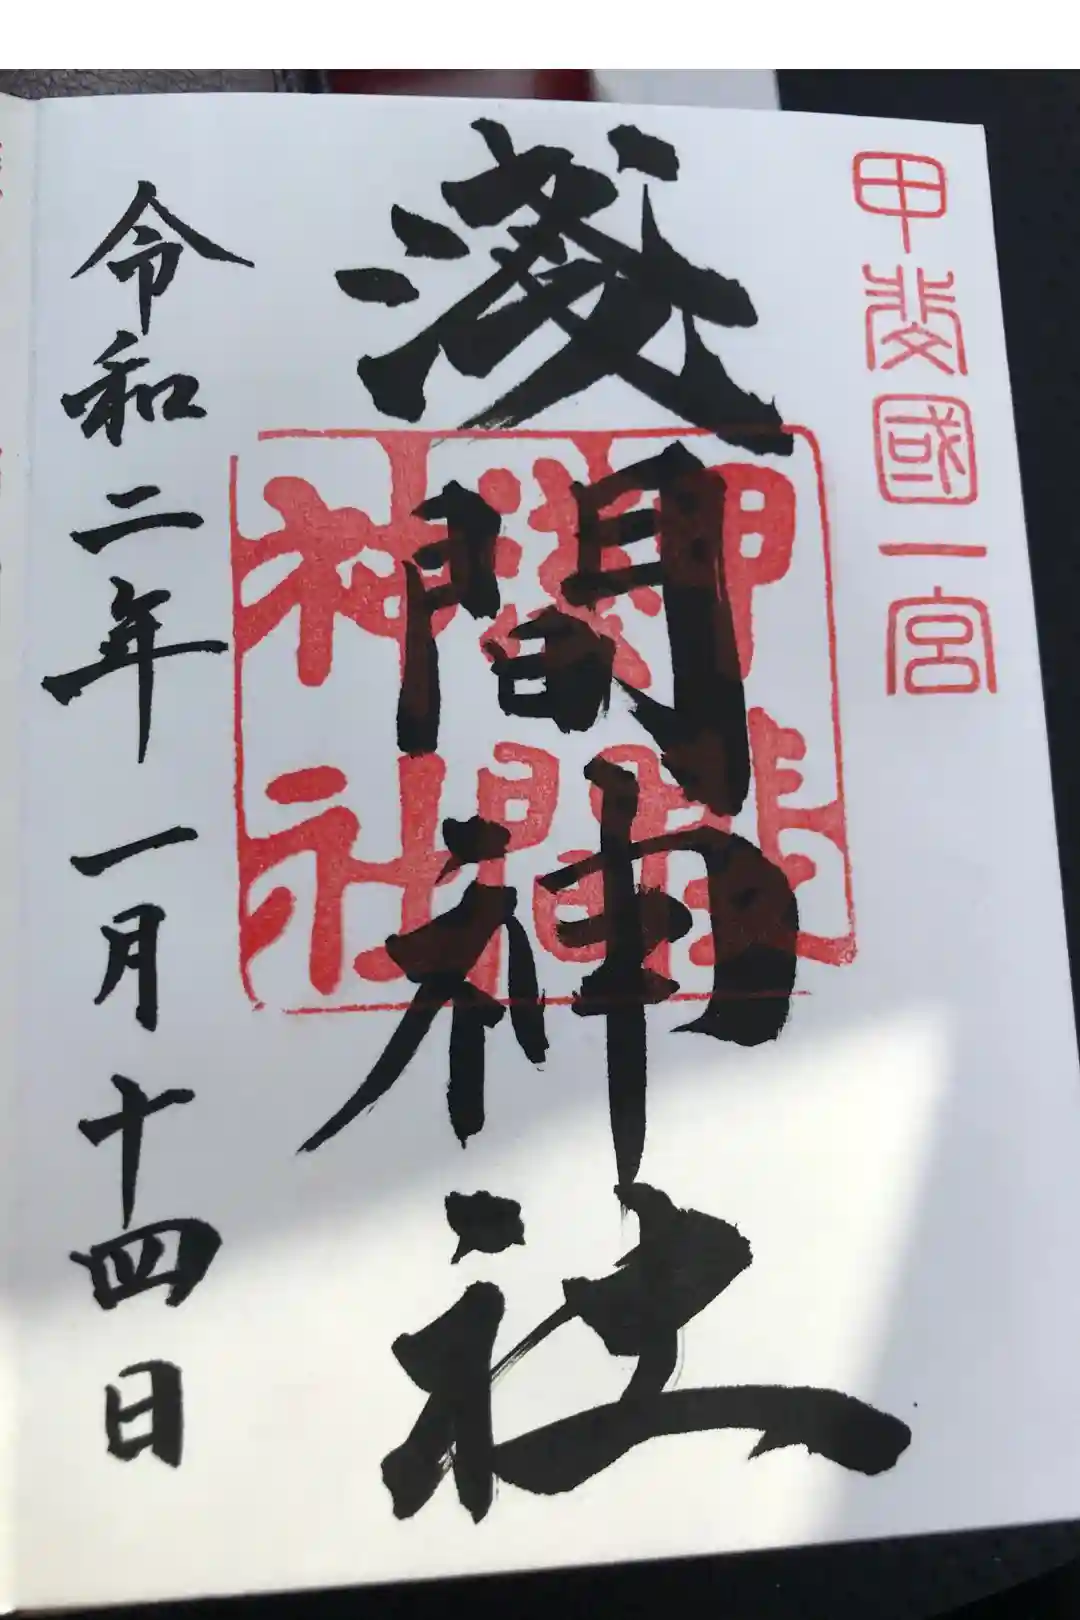 甲斐國一宮
淺間神社
淺間
神社
令和二年一月十四日